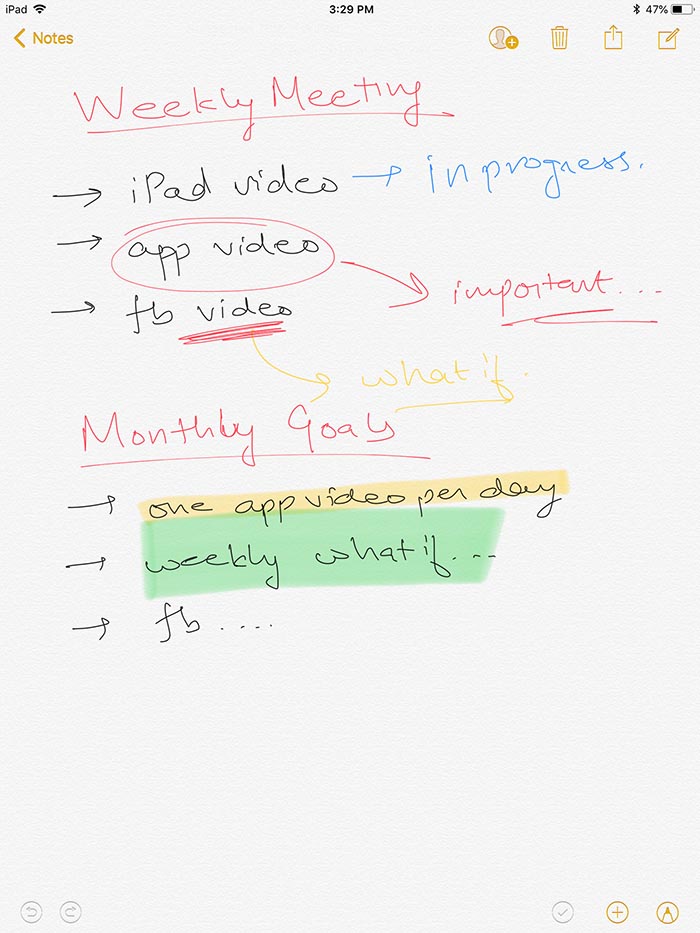 iPad 3:29 PM 47%
Notes
Weekly Meeting
→ iPad video → in progress.
→ app video
→ important...
→ fb video
→ what if.
Monthly Goals
→ one app video per day
→ weekly what if...
→ fb ....